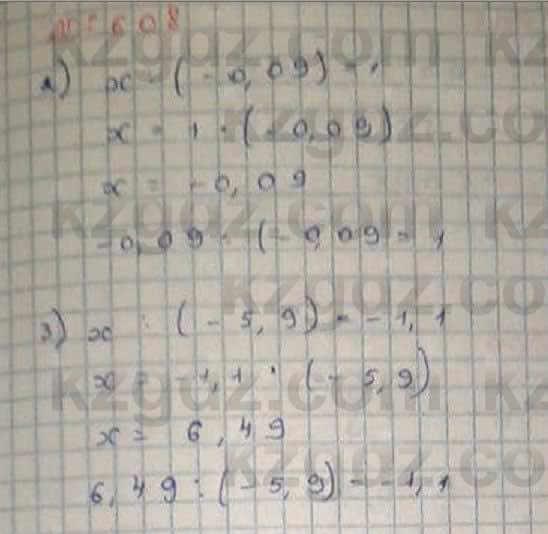 № 608
1) x : (-0,09) = 1
x = 1 · (-0,09)
x = -0,09
-0,09 : (-0,09 = 1
3) x : (-5,9) = -1,1
x = -1,1 · (-5,9)
x = 6,49
6,49 : (-5,9) = -1,1
kzgdz.com